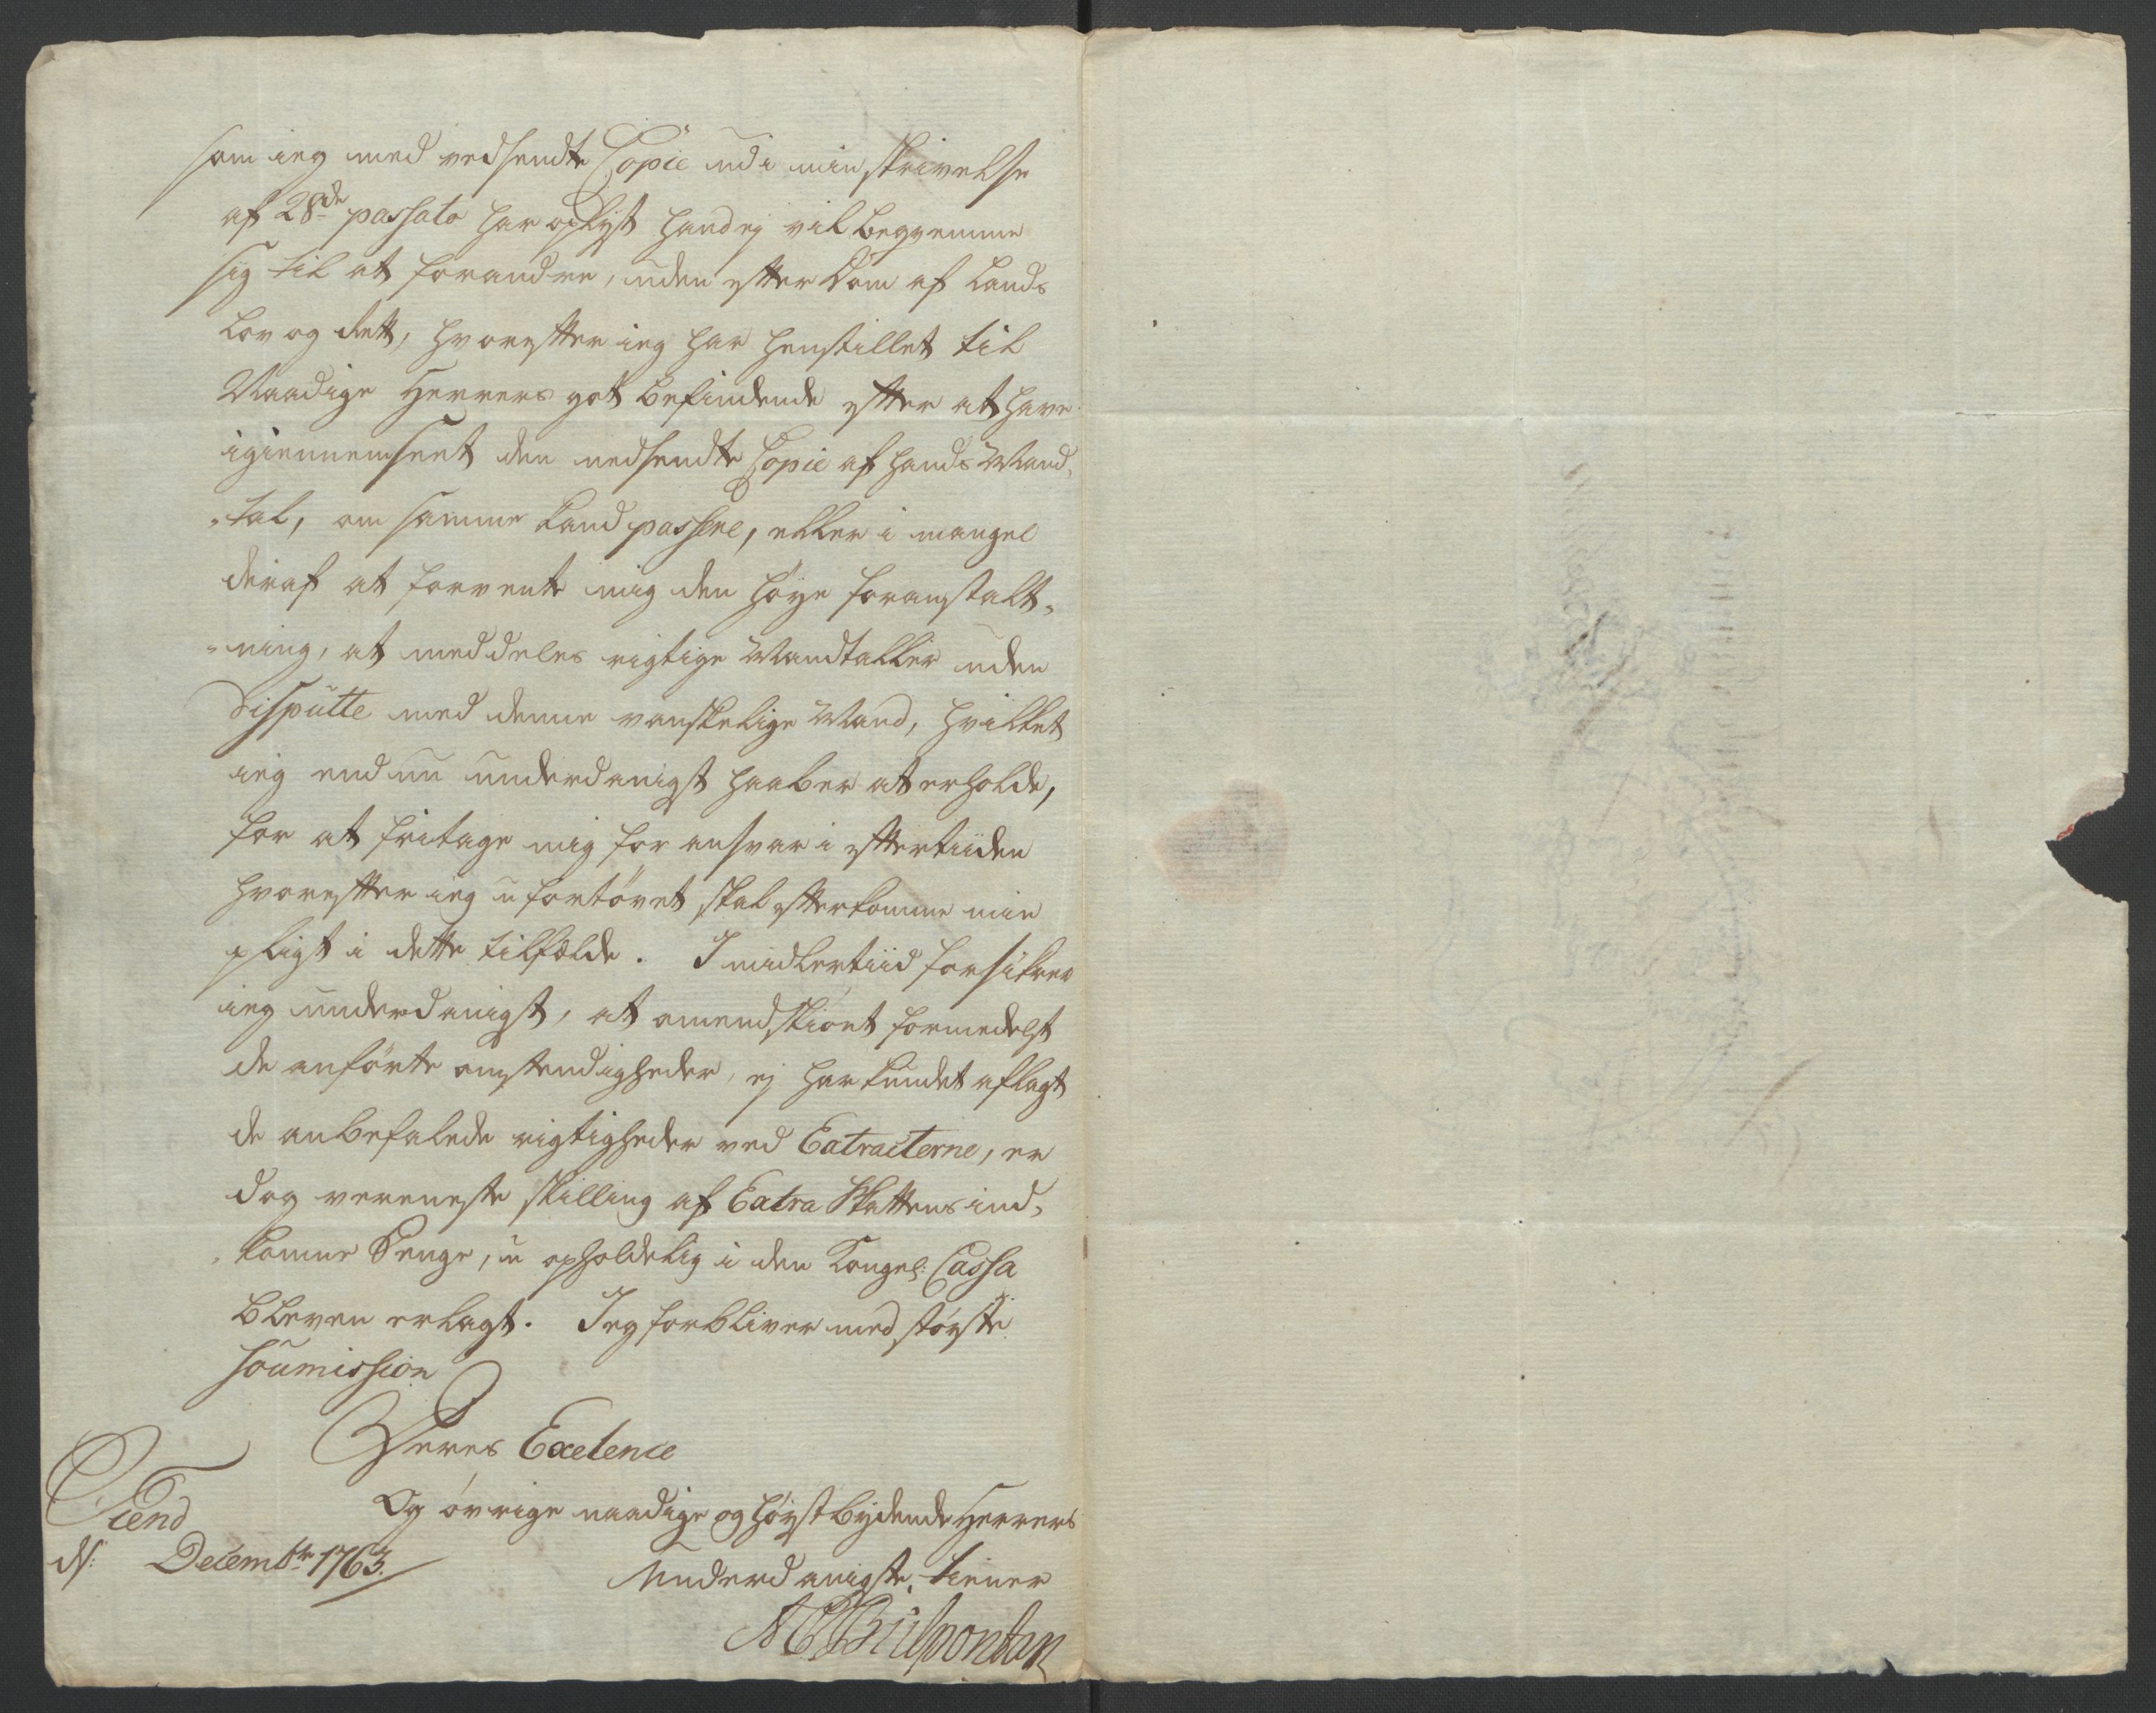 som ieg med nedsendte Copie udi min skrivelse
af 28de passato har oplyst hand ej vil beqvemme
sig til at forandre, uden efter Dom af Lands
Lov og Rett, hvorefter ieg har henstillet til
Naadige Herrers got befindende efter at have
igiennemseet den nedsendte Copie af hands Mand„
„tal, om samme kand passere, eller i mangel
deraf at forvente mig den høye foranstalt„
„ning, at meddeles rigtige Mandtaller uden
Disputte med denne vanskelige Mand, hvilket
ieg end nu underdanigst haaber at erholde,
for at fritage mig for ansvar i eftertiiden
hvorefter ieg ufortøvet skal efterkomme min
pligt i dette tilfælde. Imidlertiid forsikrer
ieg underdanigst, at omendskiønt formedelst
de anførte omstendigheder, ej har kundet aflagt
de anbefalede rigtigheder ved Extracterne, er
dog vereneste skilling af Extra Skattens ind„
„komne Penge, uopholdelig i den Kongel: Cassa
bleven erlagt. Jeg forbliver med største
soumission
Deres Excelence
Og øvrige naadige og høystbydende Herrers
Underdanigste tiener
d: Decembr 1763.